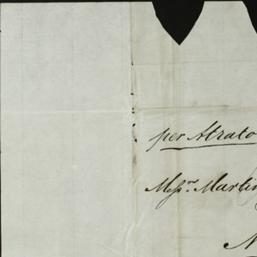 per Atrato
Messrs. Martin
N